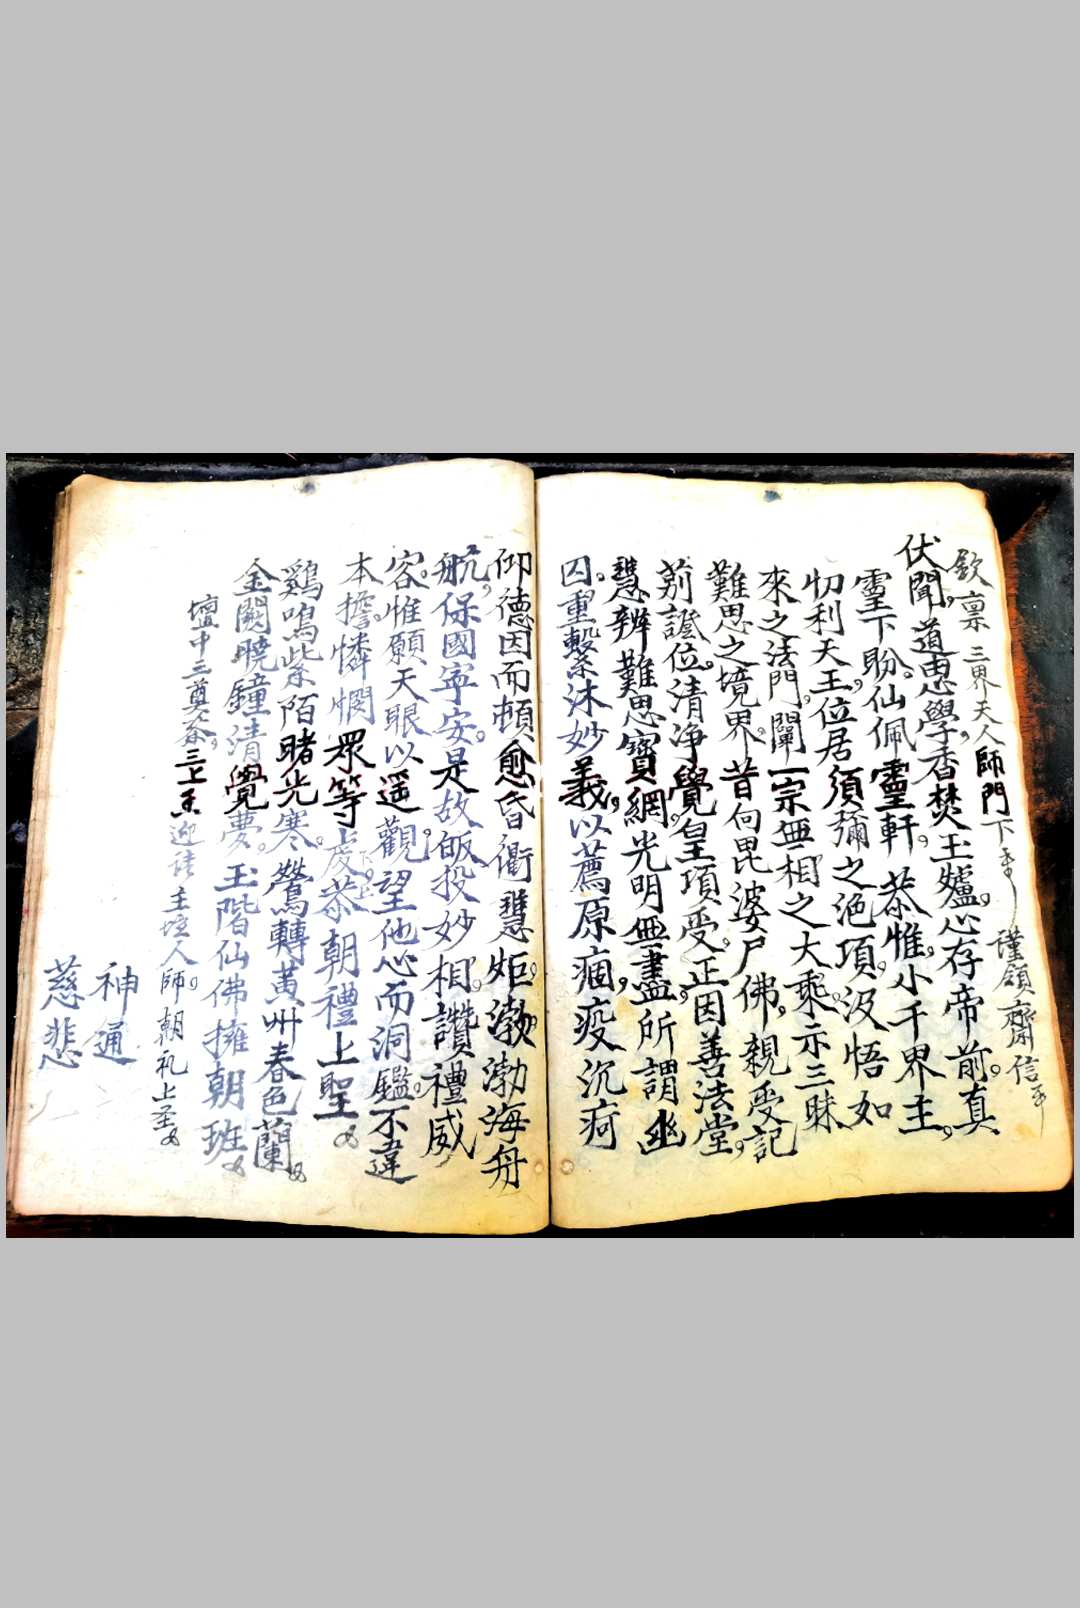 欽稟三界天人師門下 謹領齋信
伏聞。道思學。香焚玉爐。心存帝前。真
靈下盼。仙佩靈軒。恭惟。小千界主。
忉利天王。位居須彌之絕頂。汲悟如
來之法門。闡一宗無相之大乘。示三昧
難思之境界。昔向毘婆尸佛。親受記
莂證位。清净覺皇項受。正因善法堂。
慧辨難思寶網。光明無盡。所謂幽
囚。重繫沐妙義。以薦原痼。疫沉疴
仰德因而頓愈昏衢慧炬。渤渤海舟
航。保國寧安。是故皈投妙相。讚禮威
容。惟願天眼以遥觀。望他心而洞鑑。不違
本擔。憐憫眾等虔恭朝禮上聖
鷄鳴紫陌曙光寒。鶯轉黃州春色蘭。
金闕曉鐘清覺夢。玉階仙佛擁朝班
壇中三奠斎。三上香迎请主壇人師。朝礼上圣
神通
慈悲